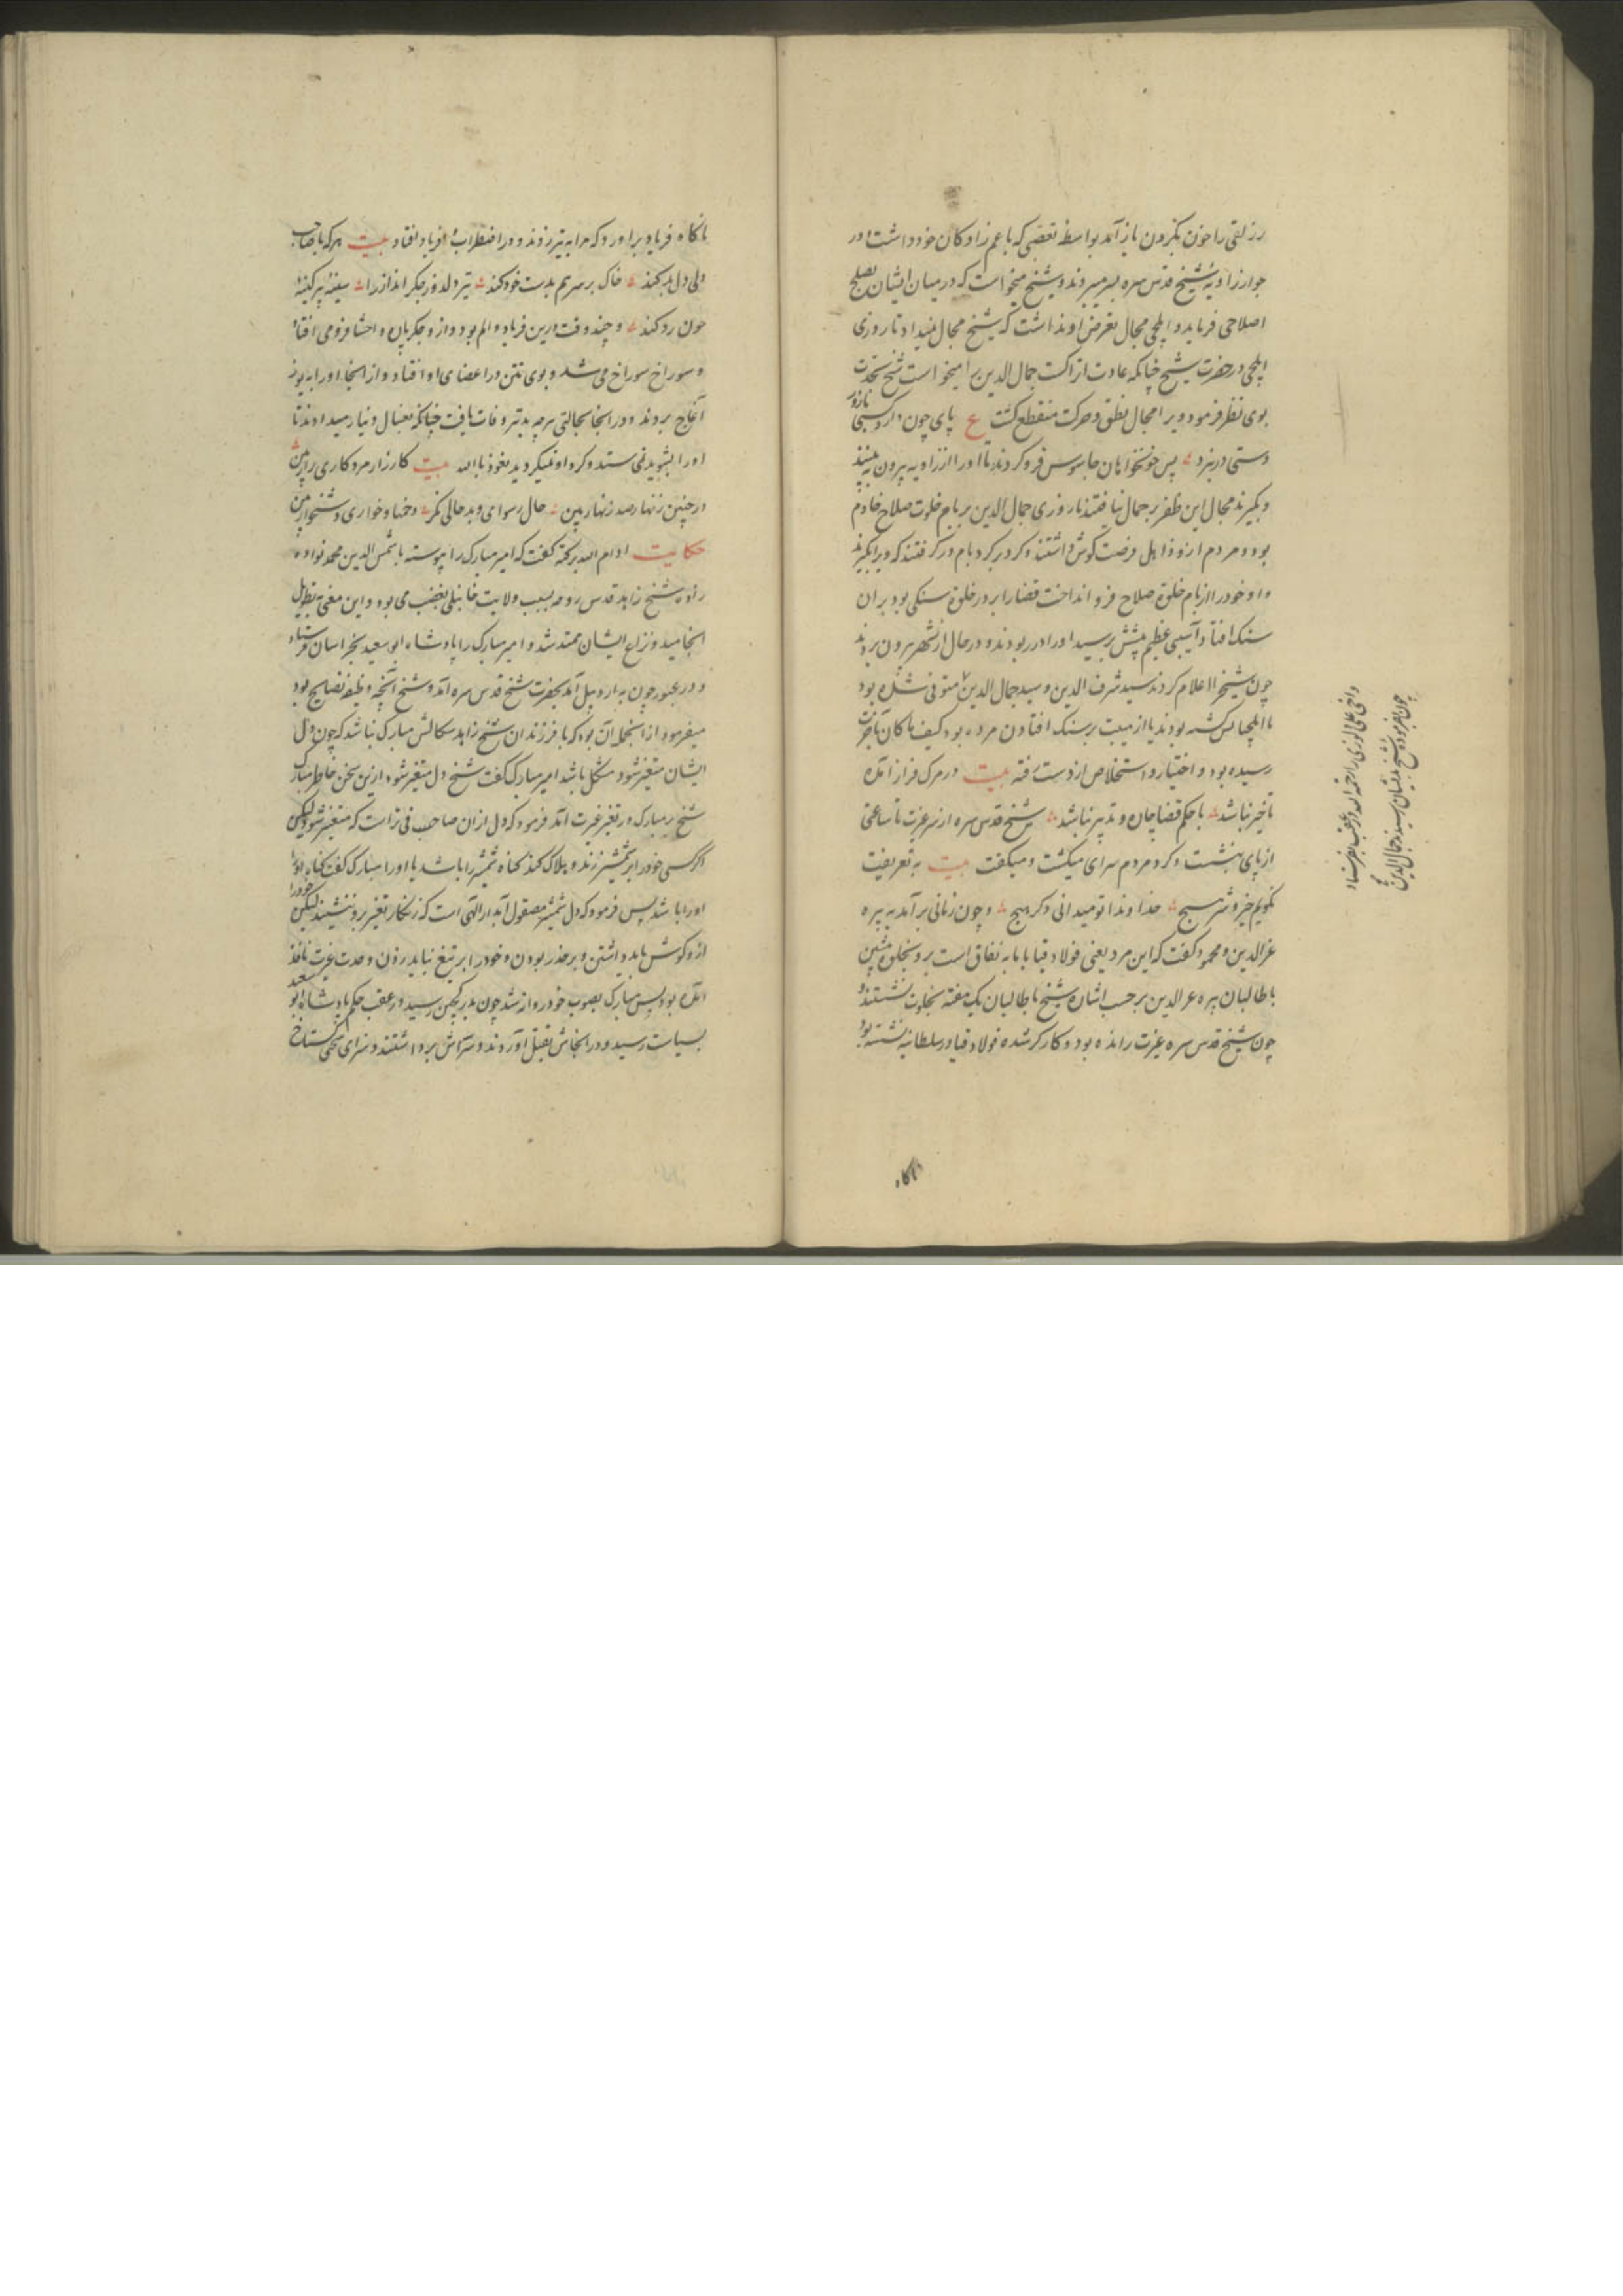 جوار زاویه شیخ قدس سره بسر میبردند و شیخ میخواست که در میان ایشان بصلح
اصلاحی فرماید و ایلچی مجال تعرض او نداشت که شیخ مجال نمیداد تا روزی
ایلچی در حضرت شیخ چنانکه عادت اتراکست جمال الدین را میخواست شیخ بحدت
بوی نظر فرمود و ویرا مجال نطق و حرکت منقطع گشت ع پای چون دارد کسی
دستی در نبرد پس خونخواهان جاسوس فرو کردند تا او را از زاویه بیرون بینند
و بگیرند مجال این ظفر بر جمال نیافتند تا روزی جمال الدین بر بام خلوت صلاح خادم
بود و مردم فرصت گوش داشتند و گرد بر گرد بام در گرفتند که ویرا بگیرند
و او خود را از بام خلوة صلاح فرو انداخت قضا را بر در خلوة سنگی بود بر آن
سنک افتاد و آسیبی عظیم پشتش برسید او را در ربودند و در حال از شهر بیرون بردند
چون شیخ را اعلام کردند سید شرف الدین و سید جمال الدین متوفی شده بود
با ایلچیا کس بودند یا از هیبت بر سنک افتادن مرده بود کیف ما کان تا
رسیده بود و اختیار و استخلاص از دست رفته بیت در مرک فراز آمده
تاخیر نباشد با حکم قضا چاره و تدبیر نباشد شیخ قدس سره از سر غیرت تا ساعتی
از پای ننشست و گرد مردم سرای میگشت و میگفت بیت به تعریفت
نگویم خیر و شر هیچ خداوندا تو میدانی دگر هیچ و چون زمانی برآمد به پیره
عزالدین و محمود گفت که این مرد یعنی فولاد قیا با ما به نفاق است برو بخلوة بنشین
با طالبان پیره عزالدین بر حسب اشاره شیخ با طالبان یک هفته بخلوت نشستند و
چون شیخ قدس سره غیرت رانده بود و کارگر شده فولاد قیا در سلطانیه نشسته بود
ناکاه
ناکاه فریاد برآورد که مرا به تیر زدند و در اضطراب و فریاد افتاد بیت هر که با صاحب
دلی دل بد کند خاک بر سر هم بدست خود کند تیر دلدوز جگر انداز را سینه پر کینه
چون رد کند و چند وقت درین فریاد و الم بود و از و جگر پاره و احشا فرو می افتاد
و سوراخ سوراخ می شد و بوی نتن در اعضای او افتاد و از انجا او را به یوز
آغاج بردند و در انجا بحالتی هر چه بدتر وفات یافت چنانکه بغسال دنیار میدادند تا
او را بشوید نمی ستد و کرد او نمیکردید نعوذ بالله بیت کار زار مرد کاری را ببین
در چنین زنهار صد زنهار بین حال رسوای و بد حالی نگر و خواری و دشخوار بین
حکایت ادام الله برکته گفت که امیر مبارک را پیوسته با شمس الدین محمد نواده
زاده شیخ زاهد قدس روحه بسبب ولایت خانبلی تعصب می بود و این معنی بتطویل
انجامید و نزاع ایشان ممتد شد و امیر مبارک را پادشاه ابو سعید بخراسان فرستاد
و در عبور چون به اردبیل آمد بحضرت شیخ قدس سره آمد و شیخ آنچه وظیفه نصایح بود
میفرمود از انجمله آن بود که با فرزندان شیخ زاهد سکالش مبارک نباشد که چون دل
ایشان متغیر شود مشکل باشد امیر مبارک گفت شیخ دل متغیر شود ازین سخن خاطر مبارک
شیخ بر مبارک در تغیر غیرت آمد فرمود که دل از ان صاحب قرانست که متغیر شود لیکن
اگر کسی خود را بر شمشیر زند و هلاک کند گناه شمشیر را باشد یا او را مبارک گفت گناه او
او را باشد پس فرمود که دل شمشیر مصقول آبدار الهی است که زنگار تغیر برو ننشیند لیکن خود را
ازو گوش باید داشتن و بر حذر بودن و خود را بر تیغ نباید زدن و حدت غیرت نافذ
آمده بود پس مبارک بصوب خود روانه شد چون رسید در عقب حکم پادشاه ابو سعید
بسیاست رسید و در انجاش بقتل آوردند و سرش برداشتند و سرای کستاخ